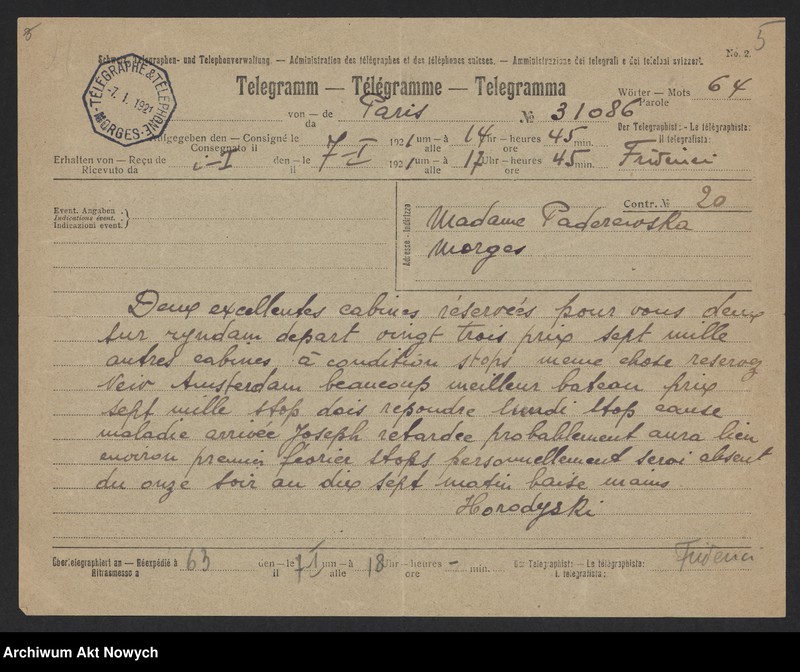 5
Schweiz. Telegraphen- und Telephonverwaltung. — Administration des télégraphes et des téléphones suisses. — Amministrazione dei telegrafi e dei telefoni svizzeri.
No. 2.
Telegramm — Télégramme — Telegramma
Wörter — Mots
Parole
64
TÉLÉGRAPHE & TÉLÉPHONE
-7. I. 1921
MORGES
von — de
da
Paris
№ 31086
Der Telegraphist: - Le télégraphiste:
Il telegrafista:
Aufgegeben den — Consigné le
Consegnato il
7-I 1921 um — à
alle
14 Uhr — heures
ore
45 min.
Erhalten von — Reçu de
Ricevuto da
den — le
il
1921 um — à
alle
17 Uhr — heures
ore
45 min.
Event. Angaben
Indications évent.
Indicazioni event.
Contr. № 20
Adresse - Indirizzo
Madame Paderewska
Morges
Deux excellentes cabines réservées pour vous deux
sur ryndam depart vingt trois prix sept mille
autres cabines à condition stops meme chose reservez
New Amsterdam beaucoup meilleur bateau prix
sept mille stop dois repondre lundi stop cause
maladie arrivée Joseph retardée probablement aura lieu
environ premier février stops personnellement serai absent
du onze soir au dix sept matin baise mains
Horodyski
Übertelegraphiert an — Réexpédié à
Ritrasmesso a
63
den — le
il
7 I um — à
alle
18 Uhr — heures
ore
- min.
Der Telegraphist: — Le télégraphiste:
Il telegrafista:
Archiwum Akt Nowych